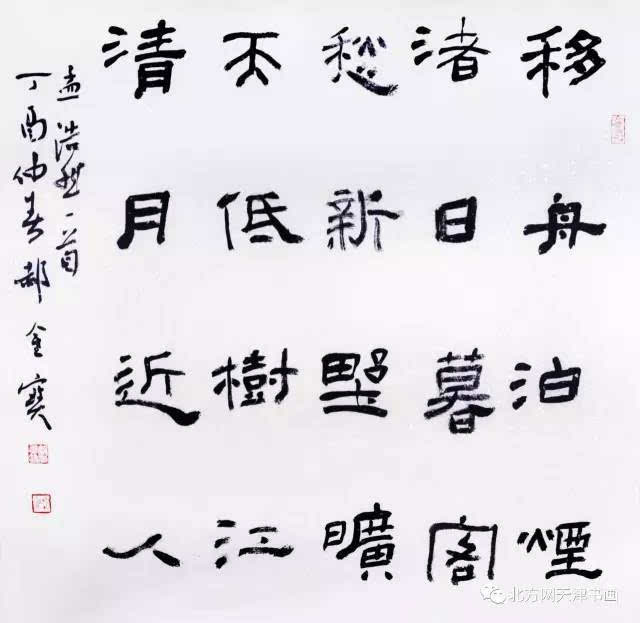 移舟泊煙
渚日暮客
愁新野曠
天低樹江
清月近人
孟浩然一首
丁酉仲春郝金寶
北方网天津书画